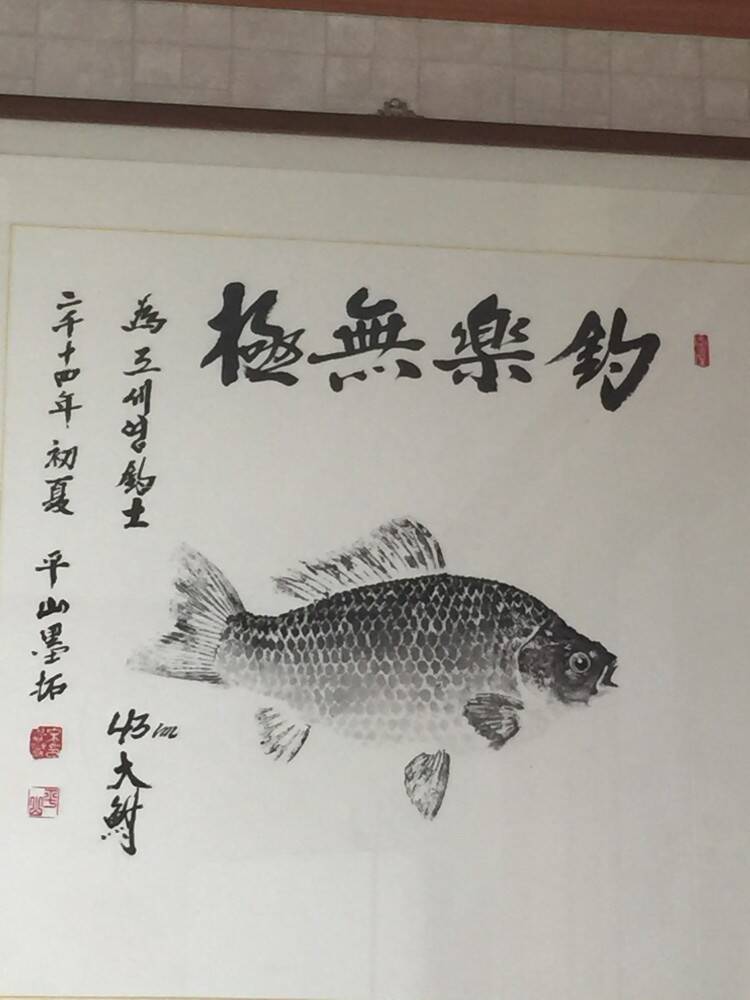 釣樂無極
為조세영釣士
二千十四年 初夏 平山墨拓
43cm 大鮒